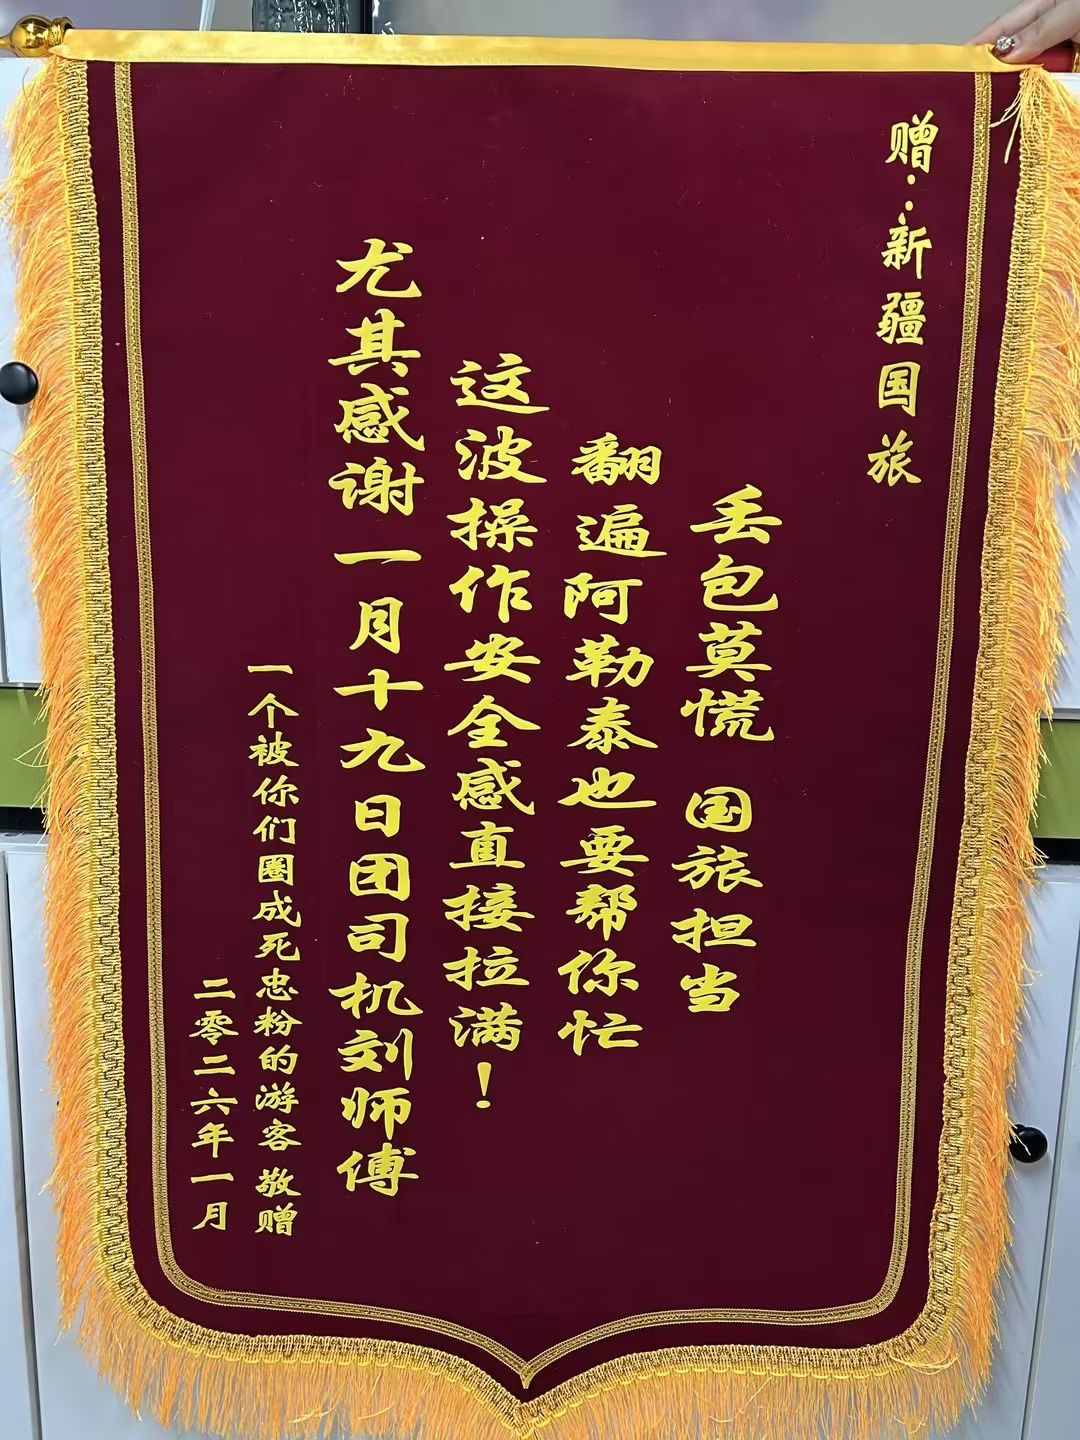 赠：新疆国旅
丢包莫慌 国旅担当
翻遍阿勒泰也要帮你忙
这波操作安全感直接拉满！
尤其感谢一月十九日团司机刘师傅
一个被你们圈成死忠粉的游客 敬赠
二零二六年一月